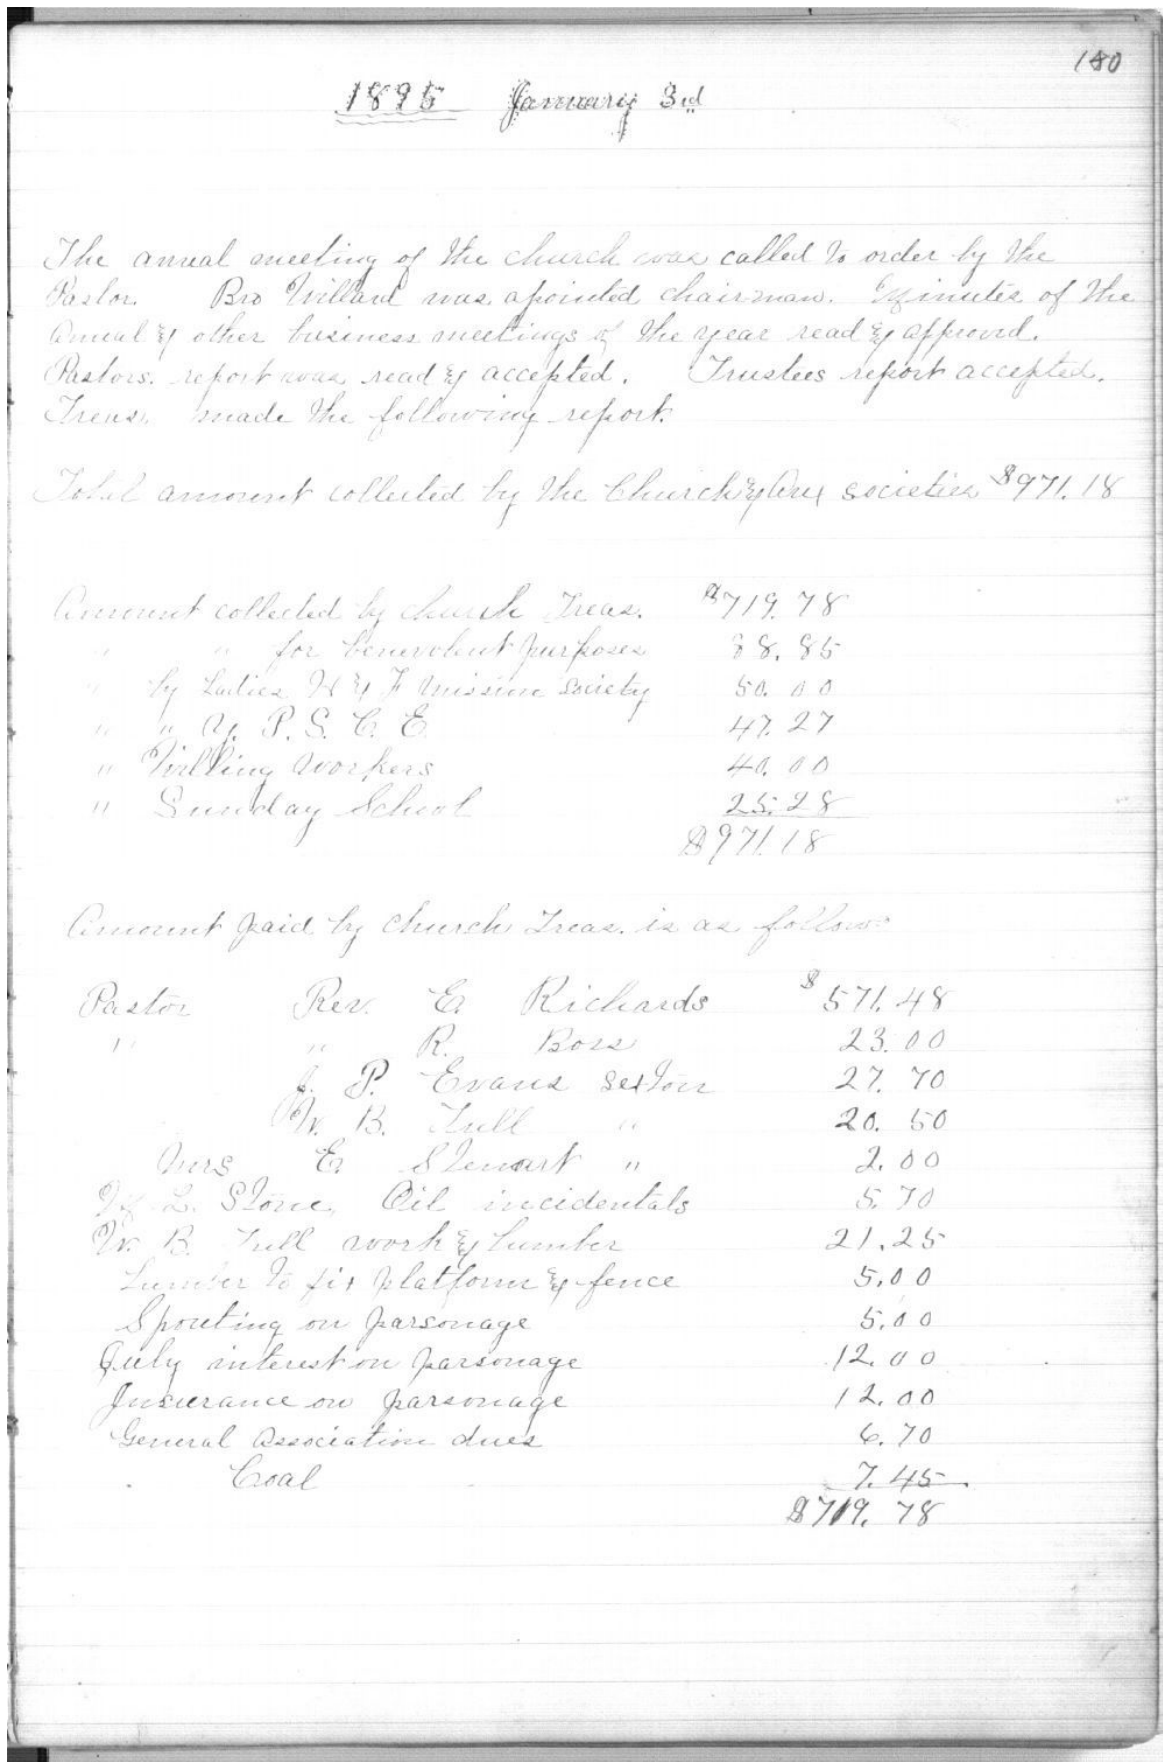 180
1895 January 3rd
The anual meeting of the church was called to order by the
Pastor. Bro Willard was apointed chairman. Minutes of the
Anual & other business meetings of the year read & approved.
Pastors. report was read & accepted. Trustees report accepted.
Treas. made the following report.
Total amount collected by the Church & Aux societies $971.18
Amount collected by church Treas. $719.78
" " for benevolent purposes 88.85
" by Ladies H & F Mission Society 50.00
" " Y. P. S. C. E. 47.27
" Willing Workers 40.00
" Sunday School 25.28
$971.18
Amount paid by church Treas. is as follows
Pastor Rev. E. Richards $571.48
" " R. Boss 23.00
J. P. Evans sexton 27.70
W. B. Tull " 20.50
Mrs E. Stewart " 2.00
L. Stone, Oil incidentals 5.70
W. B. Tull work & lumber 21.25
Lumber to fix platform & fence 5.00
Spouting on parsonage 5.00
July interest on parsonage 12.00
Insurance on parsonage 12.00
General Association dues 6.70
Coal 7.45
$719.78